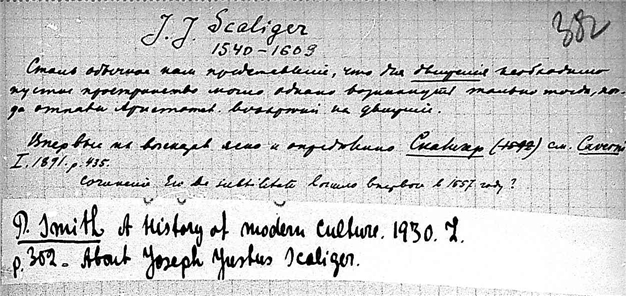 J. J. Scaliger
382
1540–1609
Столь обычное нам представление, что для движения необходимо
пустое пространство могло однако возникнуть только тогда, ког-
да отпали Аристотел. на движение.
Впервые высказал ясно и определенно Скалигер (1592) см. Caverni
I. 1891. p. 435.
Сочинение Его de subtilitate вышло впервые в 1557 году?
P. Smith A History of modern Culture. 1930. I.
p. 302 – About Joseph Justus Scaliger.